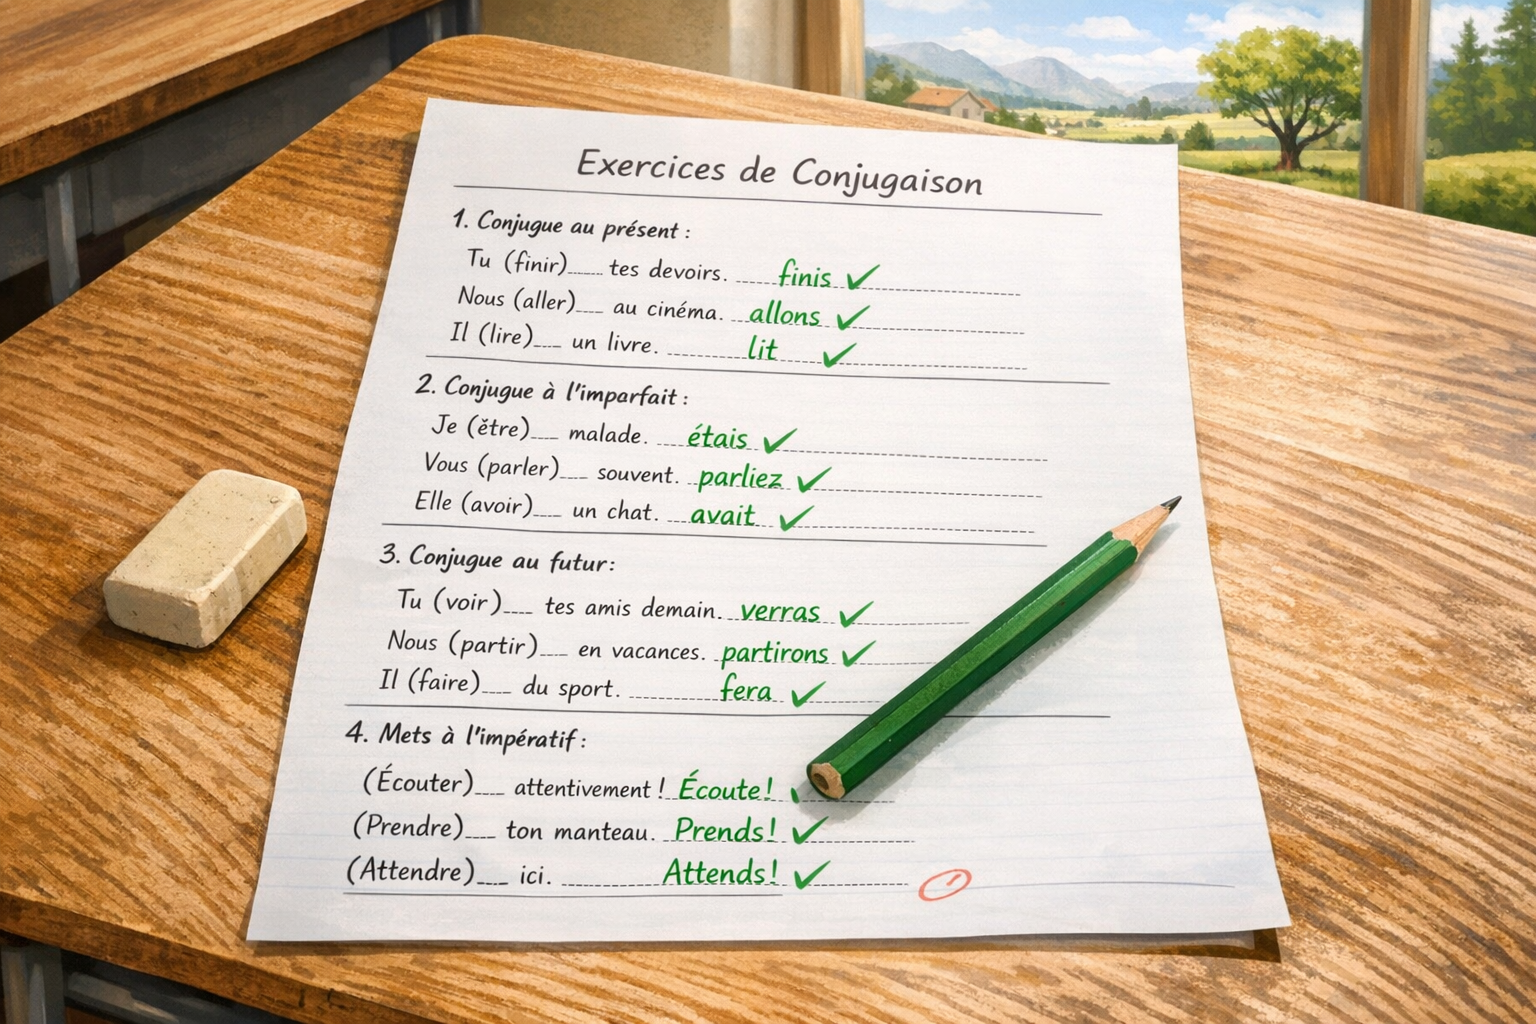 Exercices de Conjugaison
1. Conjugue au présent :
Tu (finir)____ tes devoirs. ......finis ✓
Nous (aller)____ au cinéma. ...allons ✓
Il (lire)____ un livre. ............lit ✓
2. Conjugue à l'imparfait :
Je (ětre)____ malade. ....étais ✓
Vous (parler)____ souvent. ..parliez ✓
Elle (avoir)____ un chat. ....avait ✓
3. Conjugue au futur:
Tu (voir)____ tes amis demain. ..verras ✓
Nous (partir)____ en vacances. ..partirons ✓
Il (faire)____ du sport. ............fera ✓
4. Mets à l'impératif :
(Écouter)____ attentivement ! Écoute!
(Prendre)____ ton manteau. ..Prends! ✓
(Attendre)____ ici. ............Attends! ✓